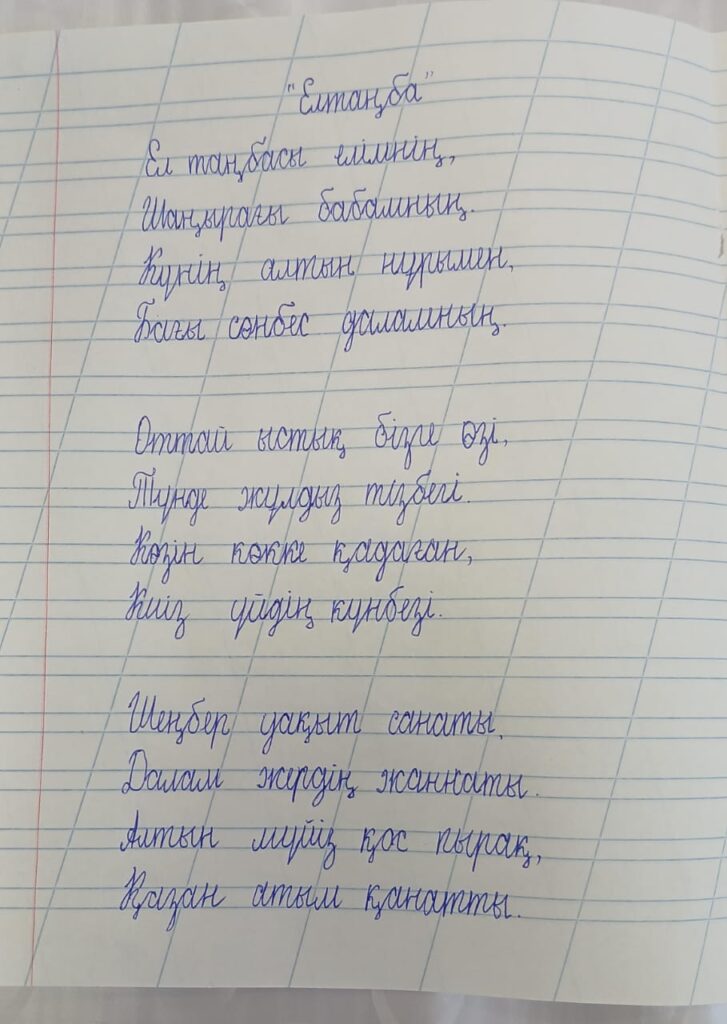 "Елтаңба"
Ел таңбасы елімнің,
Шаңырағы бабамның.
Күнің алтын нұрымен,
Бағы сөнбес даламның.
Оттай ыстық бізге өзі,
Түнде жұлдыз тізбегі.
Көзін көкке қадаған,
Киіз үйдің күнбезі.
Шеңбер уақыт санаты,
Далам жердің жаннаты.
Алтын мүйіз қос пырақ,
Қазан атым қанатты.